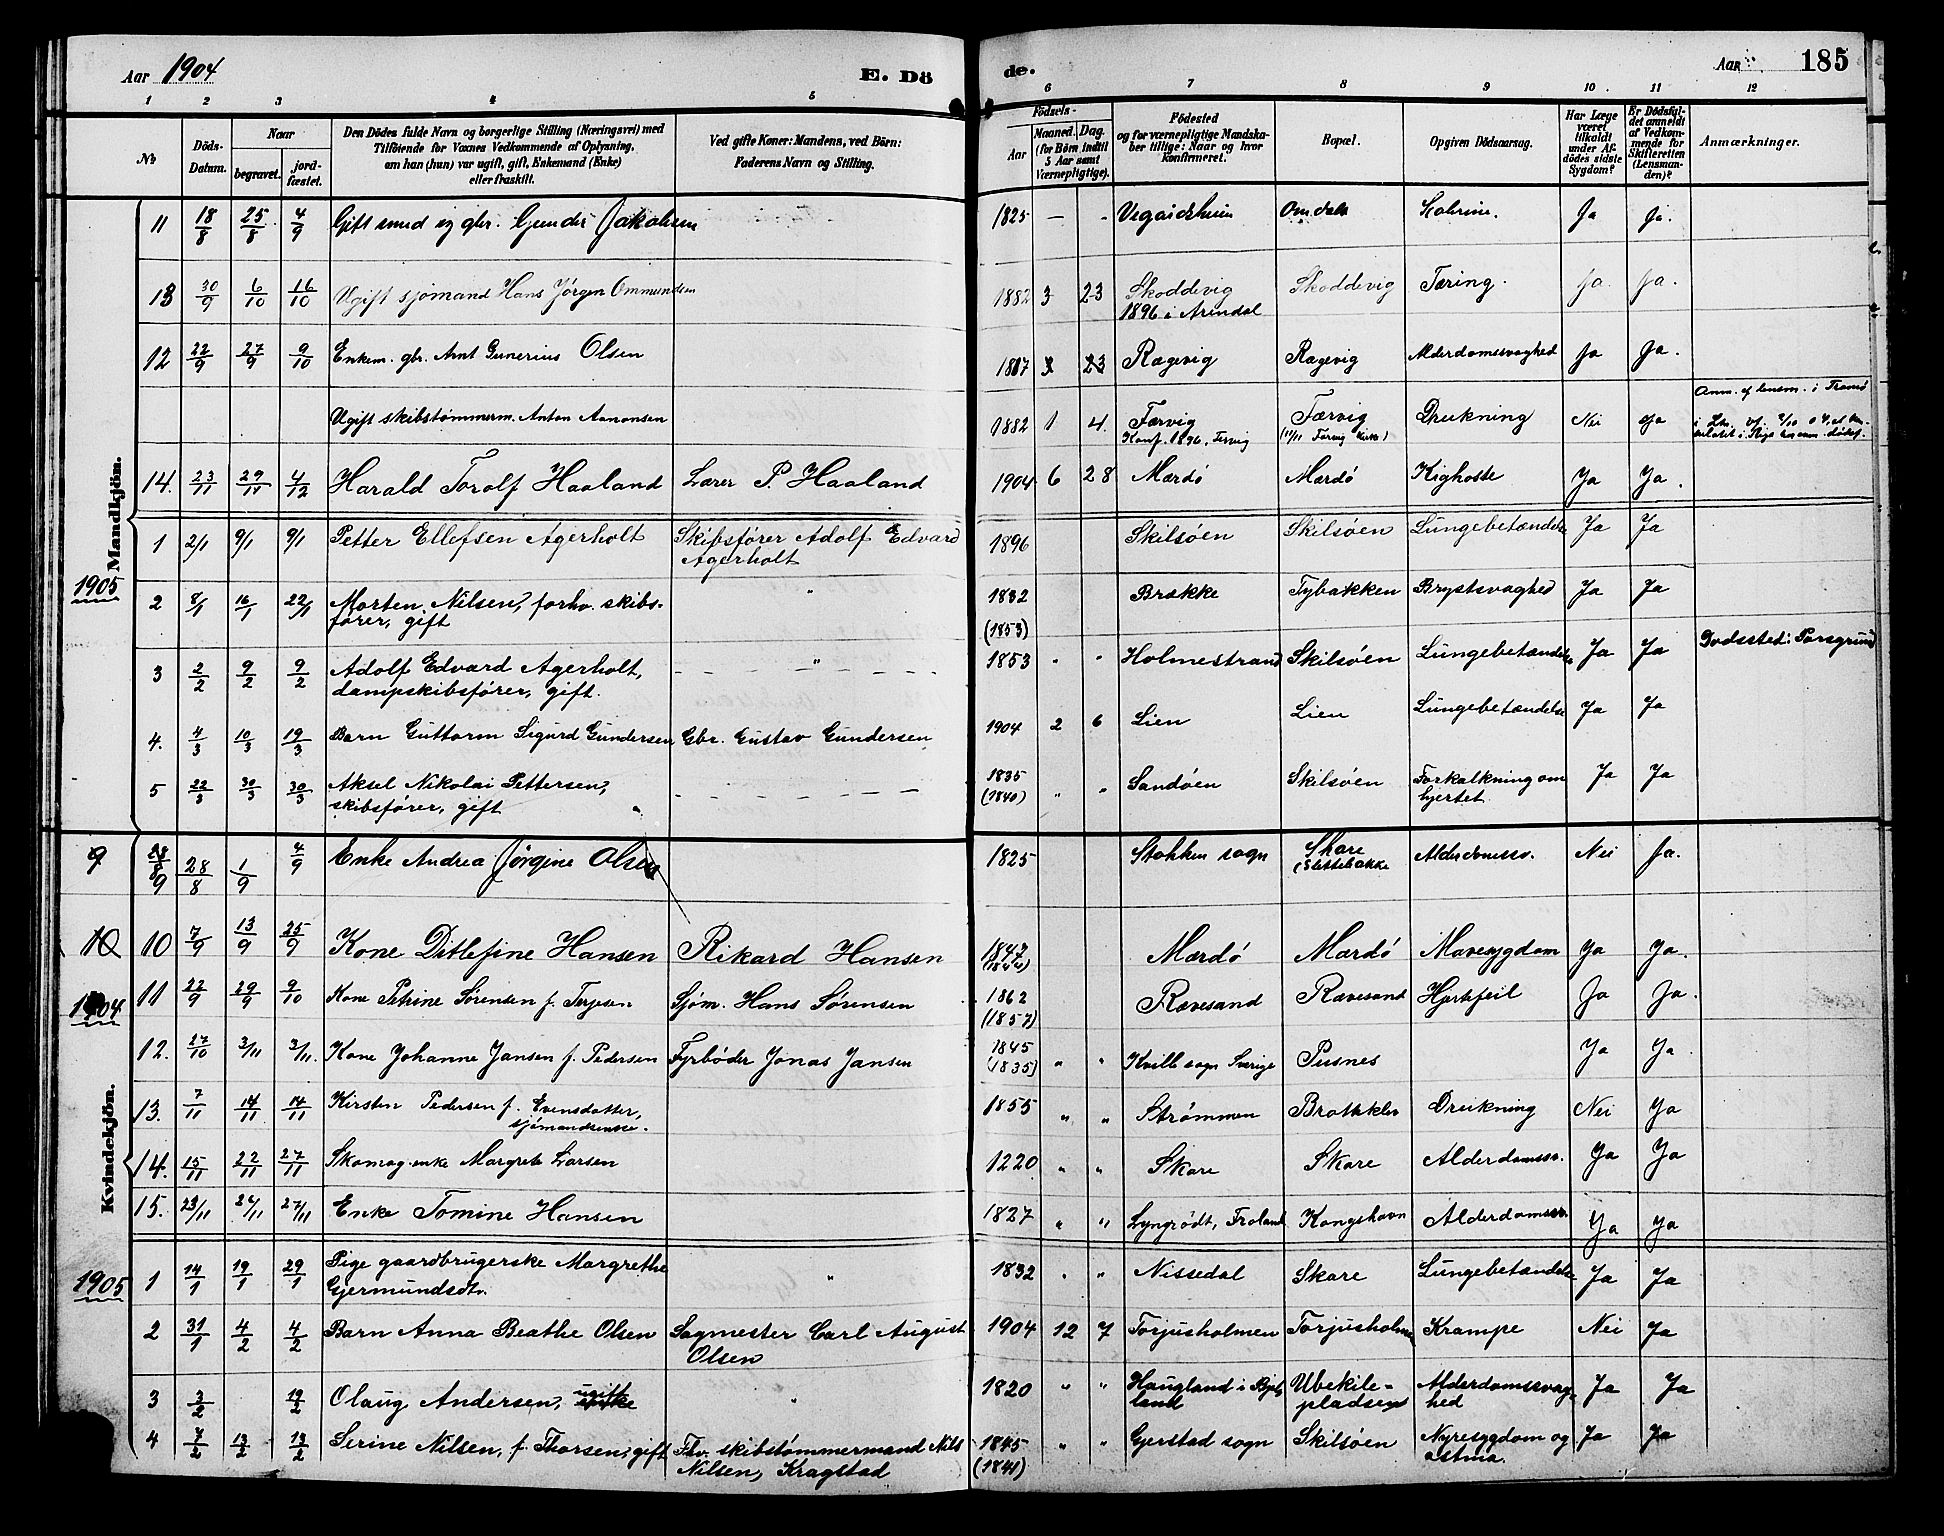 Aar 1904 E. Dö de. Aar 185
1 2 3 4 5 6 7 8 9 10 11 12
No
Döds-Datum.
Naar
begravet.
jord-fæstet.
Den Dödes fulde Navn og borgerlige Stilling (Næringsvei) med
Tilföiende for Voxnes Vedkommende af Oplysning,
om han (hun) var ugift, gift, Enkemand (Enke)
eller fraskilt.
Ved gifte Koner: Mandens, ved Börn:
Faderens Navn og Stilling.
Födsels-
Aar
Maaned. Dag.
(for Börn indtil
5 Aar samt
Værnepligtige).
Födested
og for værnepligtige Mandska-
ber tillige: Naar og hvor
konfirmeret.
Bopæl.
Opgiven Dödsaarsag.
Har Læge
været
tilkaldt
under Af-
dödes sidste
Sygdom?
Er Dödsfal-
det anmeldt
af Vedkom-
mende for
Skifteretten
(Lensman-
den)?
Anmærkninger.
Mandkjön.
11 18/8 25/8 4/9 Gift smed og gbr. Gunder Jakobsen 1825 — " Vegaidsheim Omdal Ja Ja.
13 30/9 6/10 16/10 Ugift sjømand Hans Jørgen Ommundsen 1882 3 23 Skoddevig Skoddevig Tæring. Ja. Ja.
1896 i Arendal
12 22/9 27/9 9/10 Enkem. gbr. Arnt Gunerius Olsen 1817 Rægevig Rægevig Alderdomssvaghed Ja Ja.
Anm. af lensm. i Tromø
Ugift skibstømmerm. Anton Aanonsen 1882 1 4. Færvig Færvig Drukning Nei Ja
Konf. 1896, Fervig (11/11 Færvig kirke)
14. 23/11 29/11 4/12 Harald Torolf Haaland Lærer P. Haaland 1904 6 28 Mærdø Mærdø Kighoste Ja Ja.
1905
1 2/1 9/1 9/1 Petter Ellefsen Agerholt Skibsfører Adolf Edvard 1896 Skilsøen Skilsøen Lungebetændelse Ja Ja
Agerholt
2 8/1 16/1 22/1 Morten Nilsen, forhv. skibs- " 1832 Brække Tybakken Brystsvaghed Ja Ja
fører, gift (1853)
3 2/2 9/2 9/2 Adolf Edvard Agerholt, — — — " — — — 1853 " " Holmestrand Skilsøen Lungebetændelse Ja Ja Dødssted: Porsgrund
dampskibsfører, gift.
4. 4/3 10/3 19/3 Barn Guttorm Sigurd Gundersen Gbr. Gustav Gundersen 1904 2 6 Lien Lien Lungebetændelse Ja Ja
5 22/3 30/3 30/3 Aksel Nikolai Pettersen, — — — — — — 1835 " " Sandøen Skilsøen Forkalkning om Ja Ja
skibsfører, gift (1840) hjertet.
Kvindekjön.
9 28/8 9 28/8 1/9 4/9 Enke Andrea Jørgine Olsen 1825 Stokken sogn Skare Alderdomssv. Nei Ja.
(Slettebakke
10 10 7/9 13/9 25/9 Kone Ditlefine Hansen Rikard Hansen 1847 Mærdø Mærdø Mavesygdom Ja Ja.
1904
11 22/9 29/9 9/10 Kone Petrine Sørensen f. Terjesen Sjøm. Hans Sørensen 1862 Rævesand Rævesand Hjertefeil Ja Ja.
(1857)
12. 27/10 3/11 3/11. Kone Johanne Jansen f. Pedersen Fyrbøder Jonas Jansen 1845 " " Kville sogn Sverige Pusnes Ja Ja
(1835)
13. 7/11 14/11 14/11 Kirsten Pedersen f. Evensdatter, 1855 " " Strømmen Bratteklev Drukning Nei Ja
sjømandsenke.
14. 15/11 22/11 27/11 Skomag. enke Margrete Larsen 1220 " " Skare Skare Alderdomssv. Ja Ja
15. 23/11 26/11 27/11 Enke Tomine Hansen 1827 " " Lyngrødt, Froland Kongshavn Alderdomssv. Ja Ja
1905
1 14/1 19/1 29/1 Pige gaardbrugerske Margrethe " 1832 " " Nissedal Skare Lungebetændelse Ja Ja
Gjermundsdtr.
2 31/1 4/2 4/2 Barn Anna Beathe Olsen Sagmester Carl August 1904 12 7 Torjusholmen Torjusholmen Krampe Nei Ja
Olsen
3 3/2 19/2 Olaug Andersen, ugift " 1820 " " Haugland i Byg- Ubekile- Alderdomssvag- Ja Ja
land pladsen hed
4 7/2 13/2 13/2 Serine Nilsen, f. Thorsen, gift Fhv. skibstømmermand Nils 1845 " " Gjerstad sogn Skilsøen Nyresygdom og Ja Ja
Nilsen, Kragstad (1841) astma.